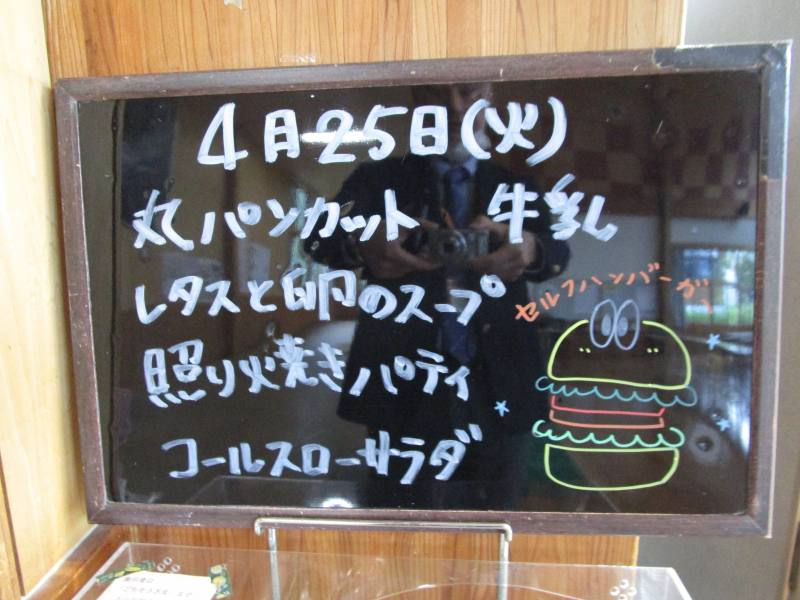 4月25日(火)
丸パンカット 牛乳
レタスと卵のスープ
セルフハンバーガー
照り火焼きパティ
コールスローサラダ